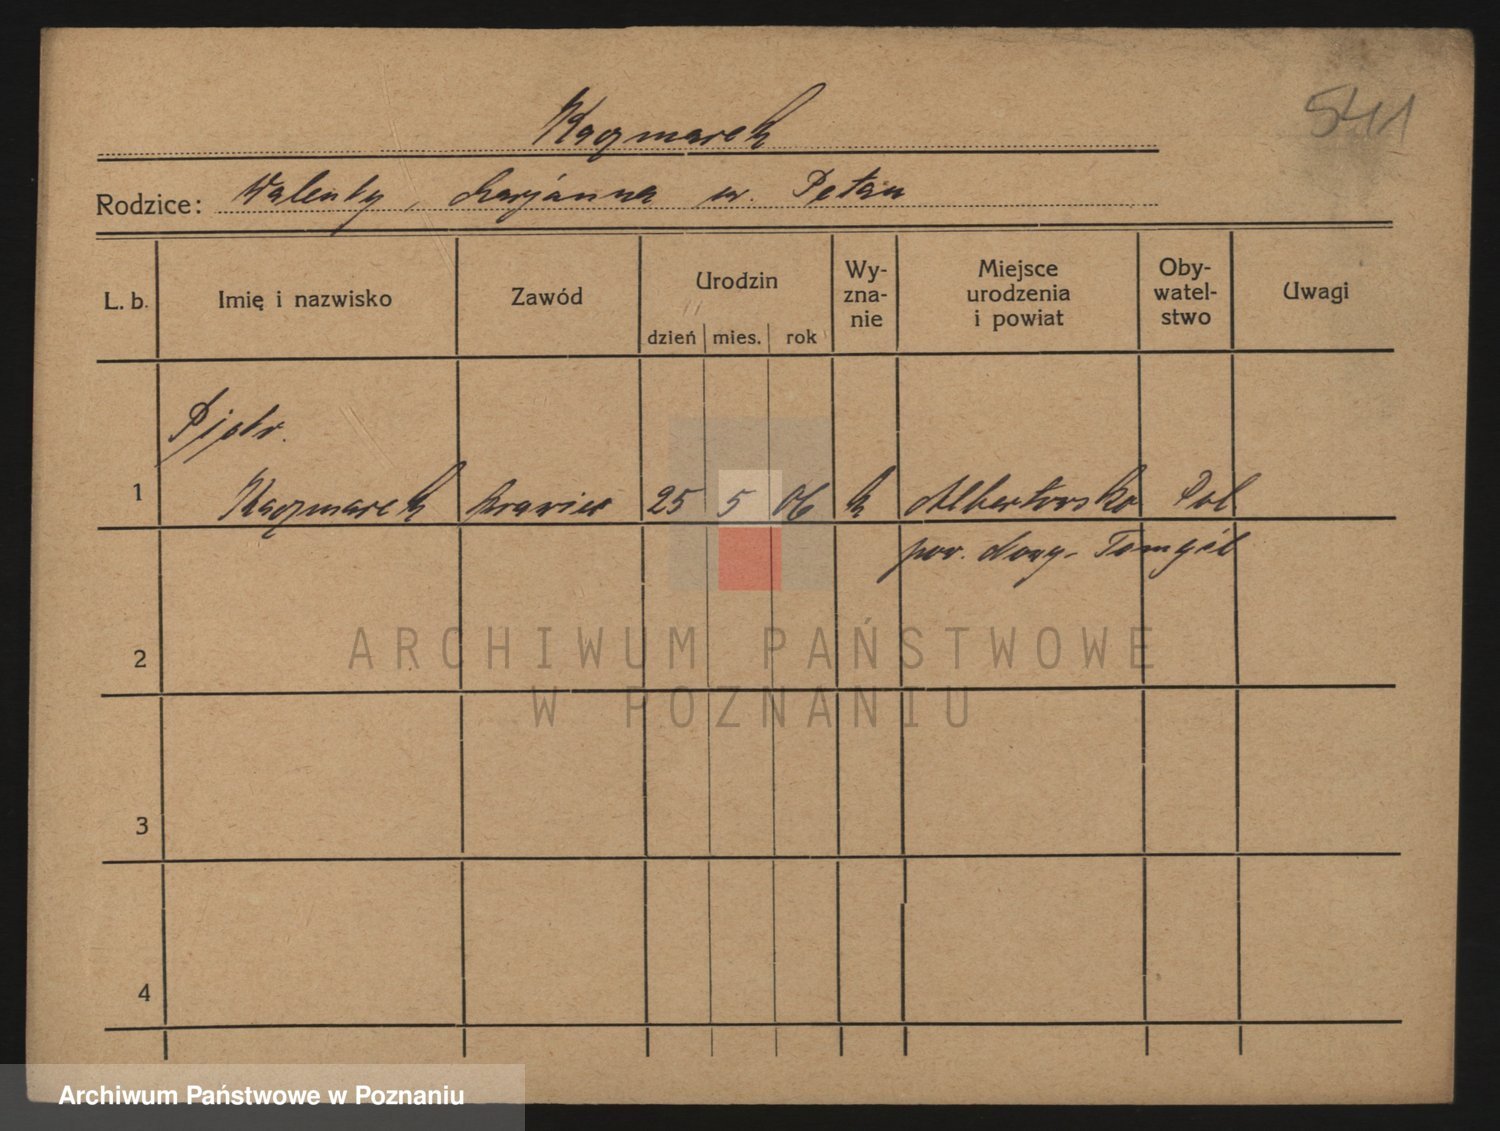 541
Kaczmarek
Rodzice: Walenty, Marjanna ur. Pętak
L. b. Imię i nazwisko Zawód Urodzin dzień mies. rok Wy-zna-nie Miejsce urodzenia i powiat Oby-watel-stwo Uwagi
Piotr
1 Kaczmarek krawiec 25 5 06 k Albertowsko Pol
pow. Nowy-Tomyśl
2
ARCHIWUM PAŃSTWOWE
W POZNANIU
3
4
Archiwum Państwowe w Poznaniu